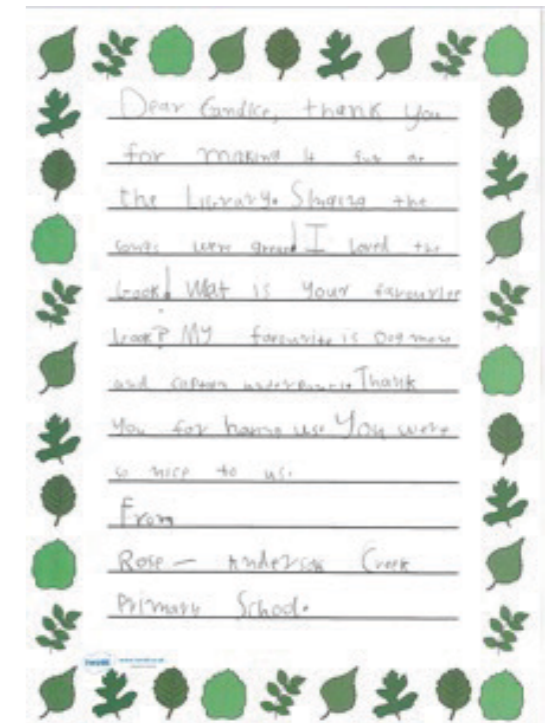 Dear Candice, thank you
for making it fun at
the Library. Singing the
songs were great! I loved the
book! Wat is your favourite
book? My favourite is Dog man
and captain underpants. Thank
You for having us. You were
so nice to us.
From
Rose - Anderson Creek
Primary School.